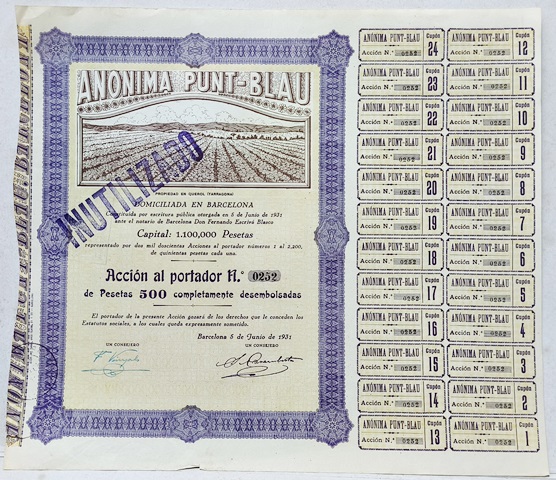 ANONIMA PUNT-BLAU
PROPIEDAD EN QUEROL (TARRAGONA)
INUTILIZADO
DOMICILIADA EN BARCELONA
Constituída por escritura pública otorgada en 5 de Junio de 1931
ante el notario de Barcelona Don Fernando Escrivá Blasco
Capital: 1.100,000 Pesetas
representado por dos mil doscientas Acciones al portador números 1 al 2,200,
de quinientas pesetas cada una.
Acción al portador N.º 0252
de Pesetas 500 completamente desembolsadas
El portador de la presente Acción gozará de los derechos que le conceden los
Estatutos sociales, a los cuales queda expresamente sometido.
Barcelona 5 de Junio de 1931
UN CONSEJERO
UN CONSEJERO
ANÓNIMA PUNT-BLAU Cupón
Acción N.º 0252 24
ANÓNIMA PUNT-BLAU Cupón
Acción N.º 0252 12
ANÓNIMA PUNT-BLAU Cupón
Acción N.º 0252 23
ANÓNIMA PUNT-BLAU Cupón
Acción N.º 0252 11
ANÓNIMA PUNT-BLAU Cupón
Acción N.º 0252 22
ANÓNIMA PUNT-BLAU Cupón
Acción N.º 0252 10
ANÓNIMA PUNT-BLAU Cupón
Acción N.º 0252 21
ANÓNIMA PUNT-BLAU Cupón
Acción N.º 0252 9
ANÓNIMA PUNT-BLAU Cupón
Acción N.º 0252 20
ANÓNIMA PUNT-BLAU Cupón
Acción N.º 0252 8
ANÓNIMA PUNT-BLAU Cupón
Acción N.º 0252 19
ANÓNIMA PUNT-BLAU Cupón
Acción N.º 0252 7
ANÓNIMA PUNT-BLAU Cupón
Acción N.º 0252 18
ANÓNIMA PUNT-BLAU Cupón
Acción N.º 0252 6
ANÓNIMA PUNT-BLAU Cupón
Acción N.º 0252 17
ANÓNIMA PUNT-BLAU Cupón
Acción N.º 0252 5
ANÓNIMA PUNT-BLAU Cupón
Acción N.º 0252 16
ANÓNIMA PUNT-BLAU Cupón
Acción N.º 0252 4
ANÓNIMA PUNT-BLAU Cupón
Acción N.º 0252 15
ANÓNIMA PUNT-BLAU Cupón
Acción N.º 0252 3
ANÓNIMA PUNT-BLAU Cupón
Acción N.º 0252 14
ANÓNIMA PUNT-BLAU Cupón
Acción N.º 0252 2
ANÓNIMA PUNT-BLAU Cupón
Acción N.º 0252 13
ANÓNIMA PUNT-BLAU Cupón
Acción N.º 0252 1